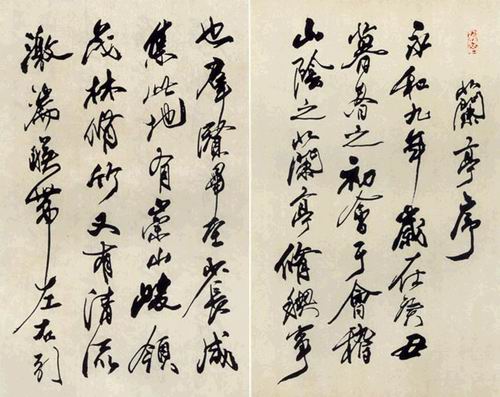 蘭亭序
永和九年歲在癸丑
暮春之初會于會稽
山陰之蘭亭脩禊事
也羣賢畢至少長咸
集此地有崇山峻領
茂林脩竹又有清流
激湍暎帶左右引